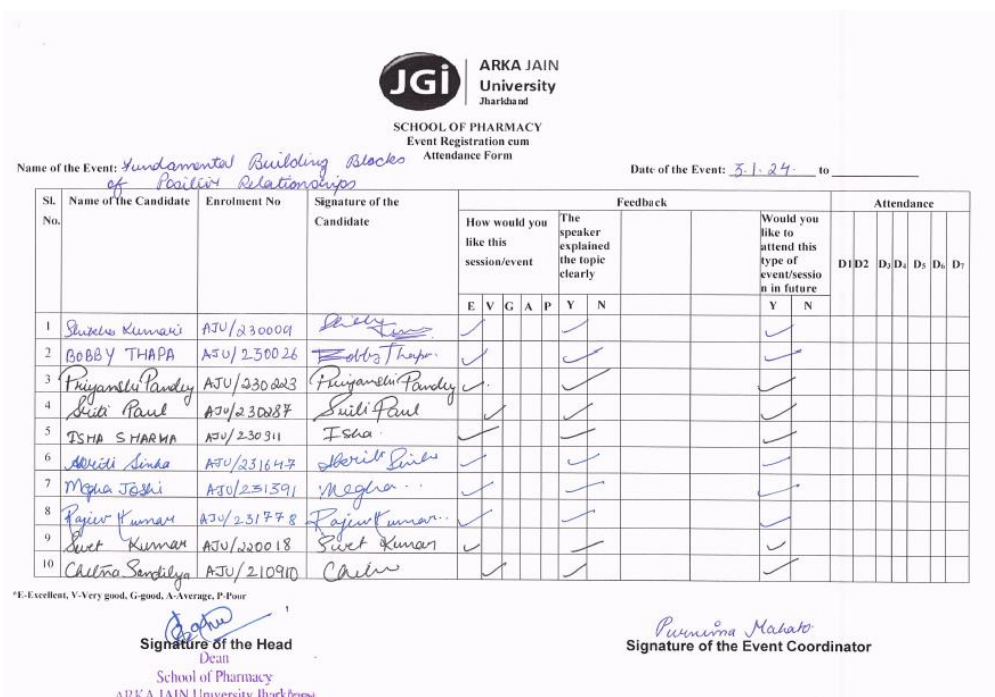 JGi
ARKA JAIN
University
Jharkhand
SCHOOL OF PHARMACY
Event Registration cum
Attendance Form
Name of the Event: Fundamental Building Blocks
of Positive Relationships
Date of the Event: 3.1.24. to
Sl. No. Name of the Candidate Enrolment No Signature of the Candidate Feedback Attendance
How would you like this session/event The speaker explained the topic clearly Would you like to attend this type of event/sessio n in future D1 D2 D3 D4 D5 D6 D7
E V G A P Y N Y N
1 Kumari AJU/230009
2 BOBBY THAPA AJU/230026 Bobby Thapa.
3 Priyanshi Pandey AJU/230223 Priyanshi Pandey
4 Paul AJU/230287 Paul
5 ISHA SHARMA AJU/230911 Isha
6 Sinha AJU/231647
7 Megha Joshi AJU/231391 Megha
8 Rajiv Kumar AJU/231778 Rajiv Kumar
9 Kumar AJU/220018 Kumar
10 Sandilya AJU/210910
*E-Excellent, V-Very good, G-good, A-Average, P-Poor
Signature of the Head
Dean
School of Pharmacy
ARKA JAIN University Jharkhand
Purnima Mahato
Signature of the Event Coordinator